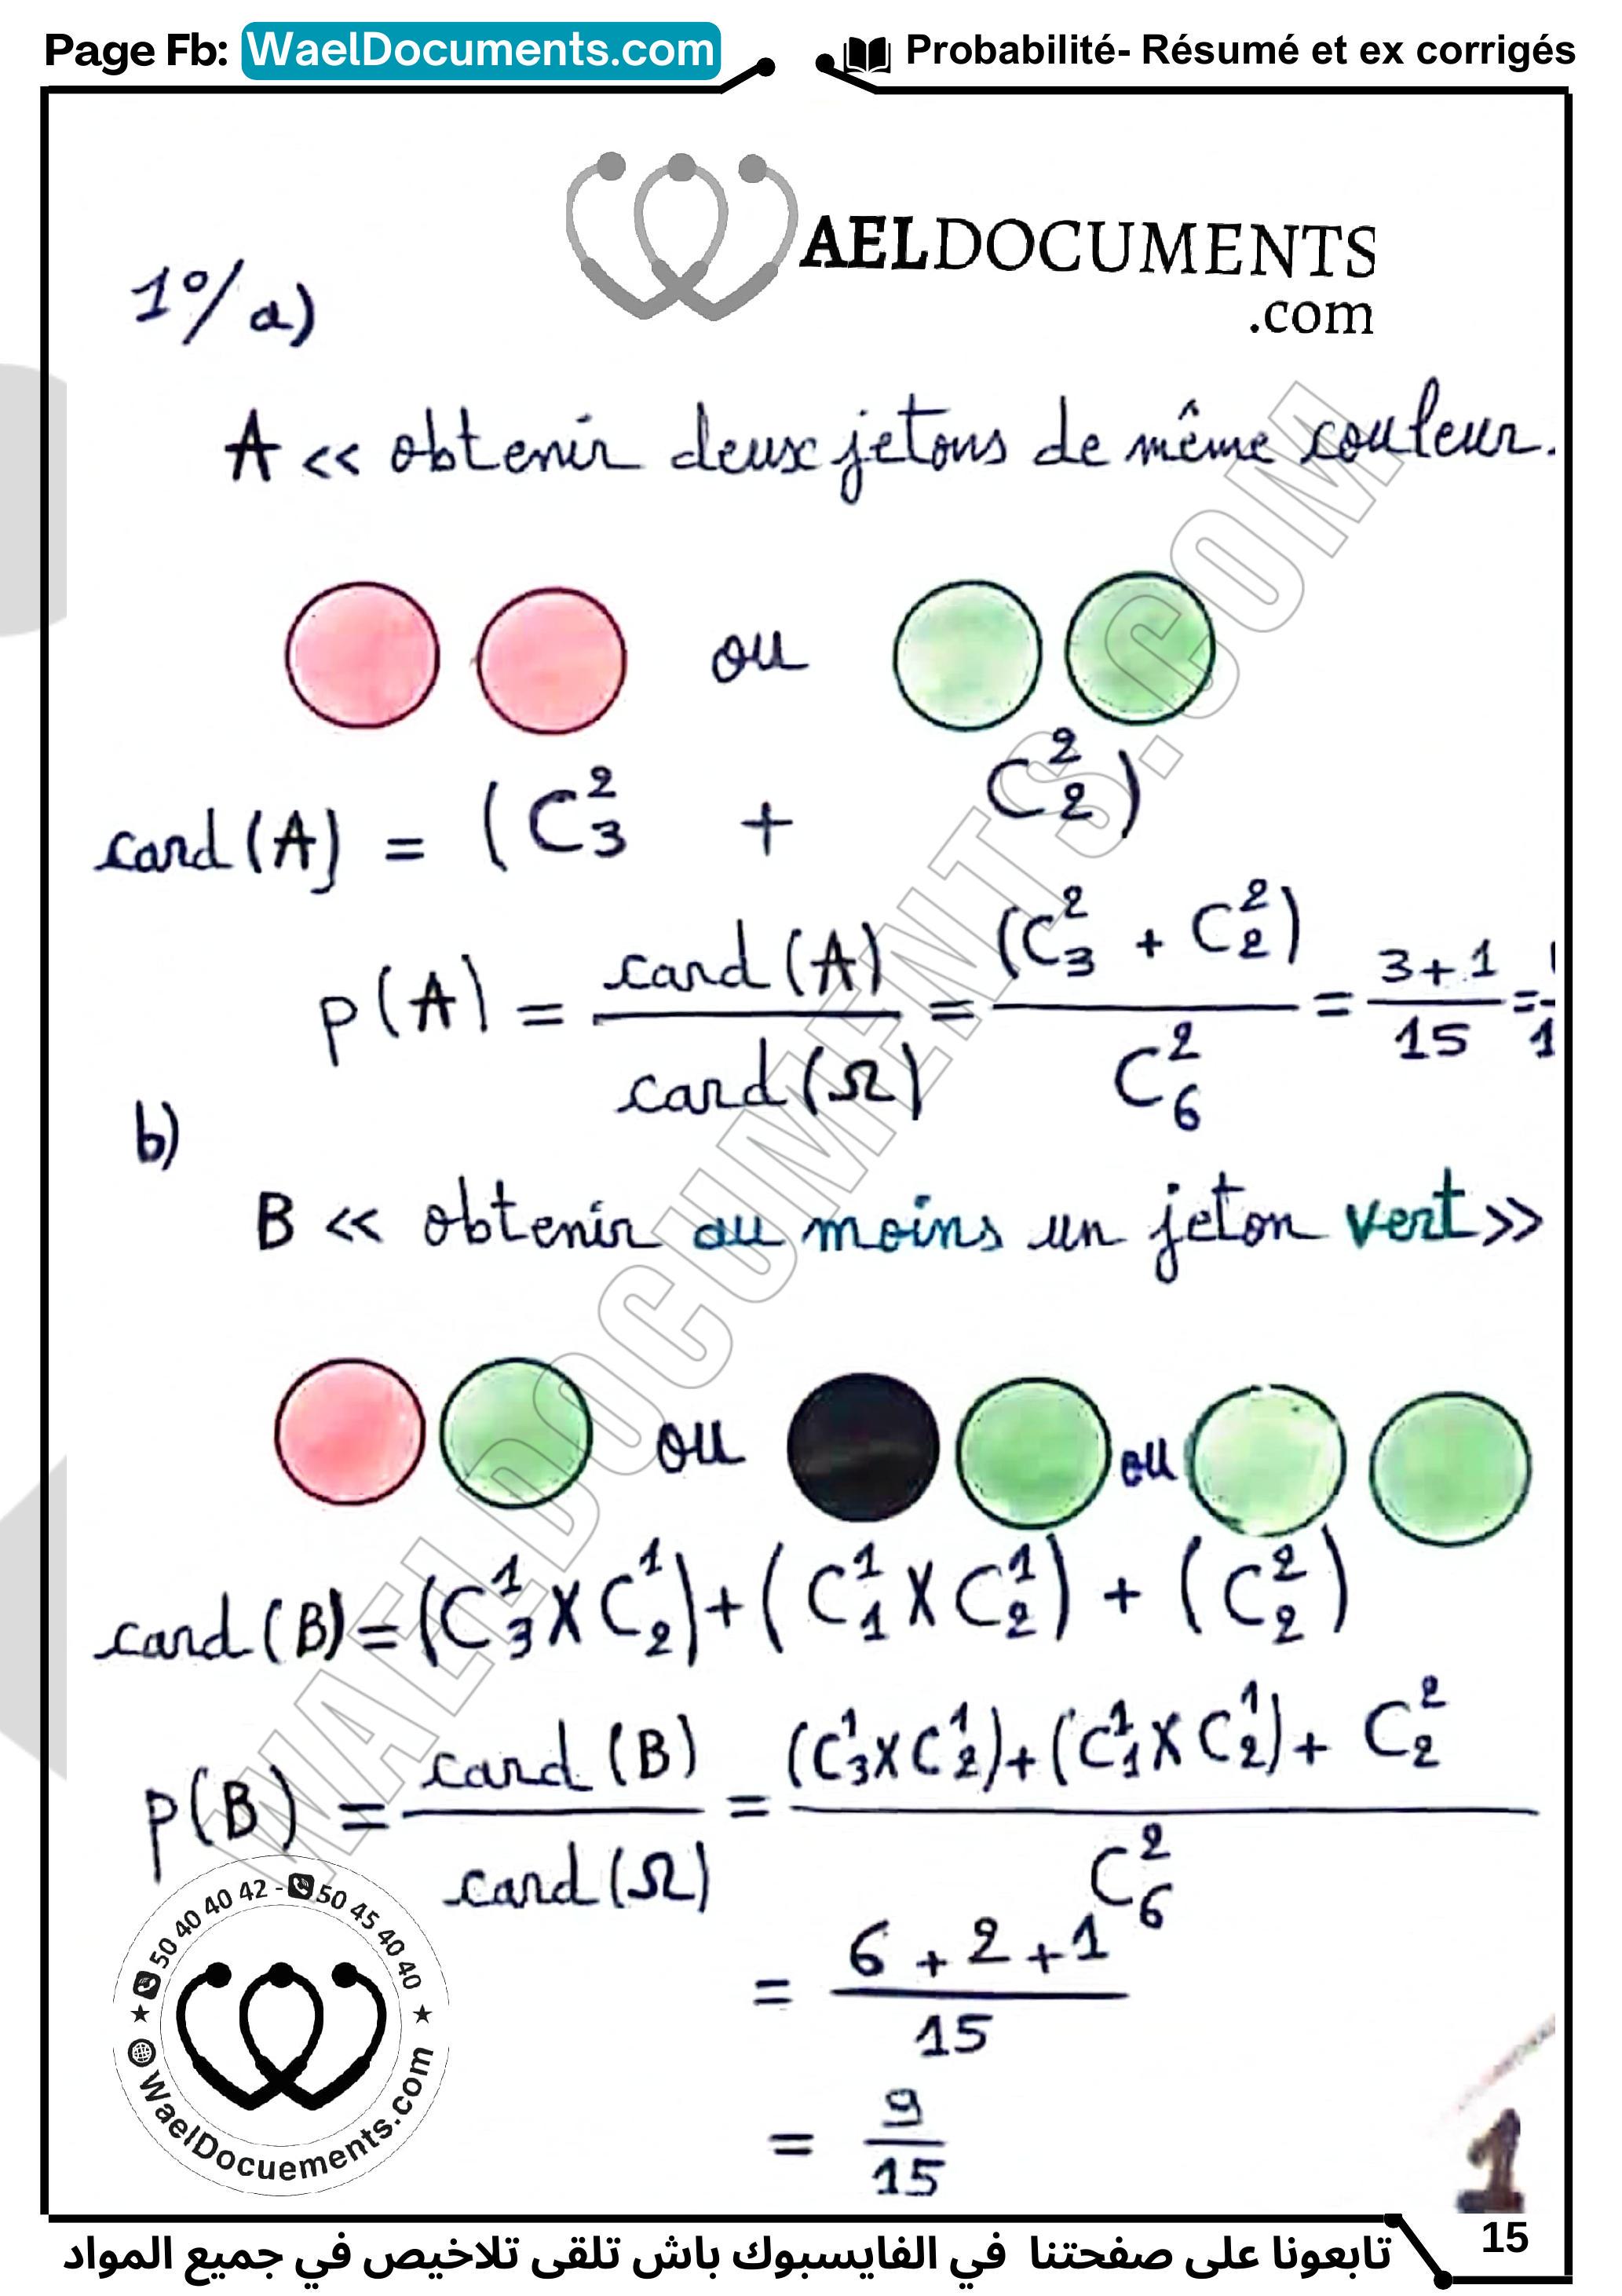 Page Fb: WaelDocuments.com
Probabilité- Résumé et ex corrigés
AELDOCUMENTS
.com
1°/ a)
A << obtenir deux jetons de même couleur.
ou
card(A) = (C²₃ + C²₂)
p(A) = card(A)/card(Ω) = (C²₃ + C²₂)/C²₆ = 3+1/15 =
b)
B << obtenir au moins un jeton vert >>
ou ou
card(B) = (C¹₃ X C¹₂) + (C¹₁ X C¹₂) + (C²₂)
p(B) = card(B)/card(Ω) = (C¹₃ X C¹₂) + (C¹₁ X C¹₂) + C²₂/C²₆
= 6 + 2 + 1/15
= 9/15
WAELDOCUMENTS.COM
50 40 40 42 - 50 45 40 40
WaelDocuements.com
1
تابعونا على صفحتنا في الفايسبوك باش تلقى تلاخيص في جميع المواد
15